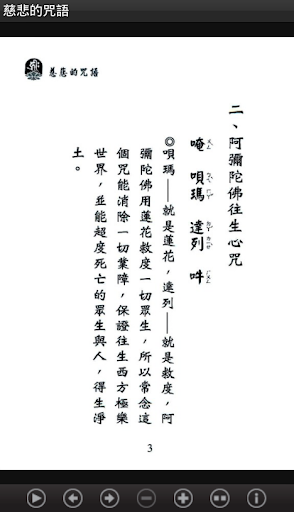 慈悲的咒語
慈悲的咒語
二、阿彌陀佛往生心咒
唵 唄瑪 達列 吽
◎唄瑪——就是蓮花，達列——就是救度，阿
彌陀佛用蓮花救度一切眾生，所以常念這
個咒能消除一切業障，保證往生西方極樂
世界，並能超度死亡的眾生與人，得生淨
土。
3